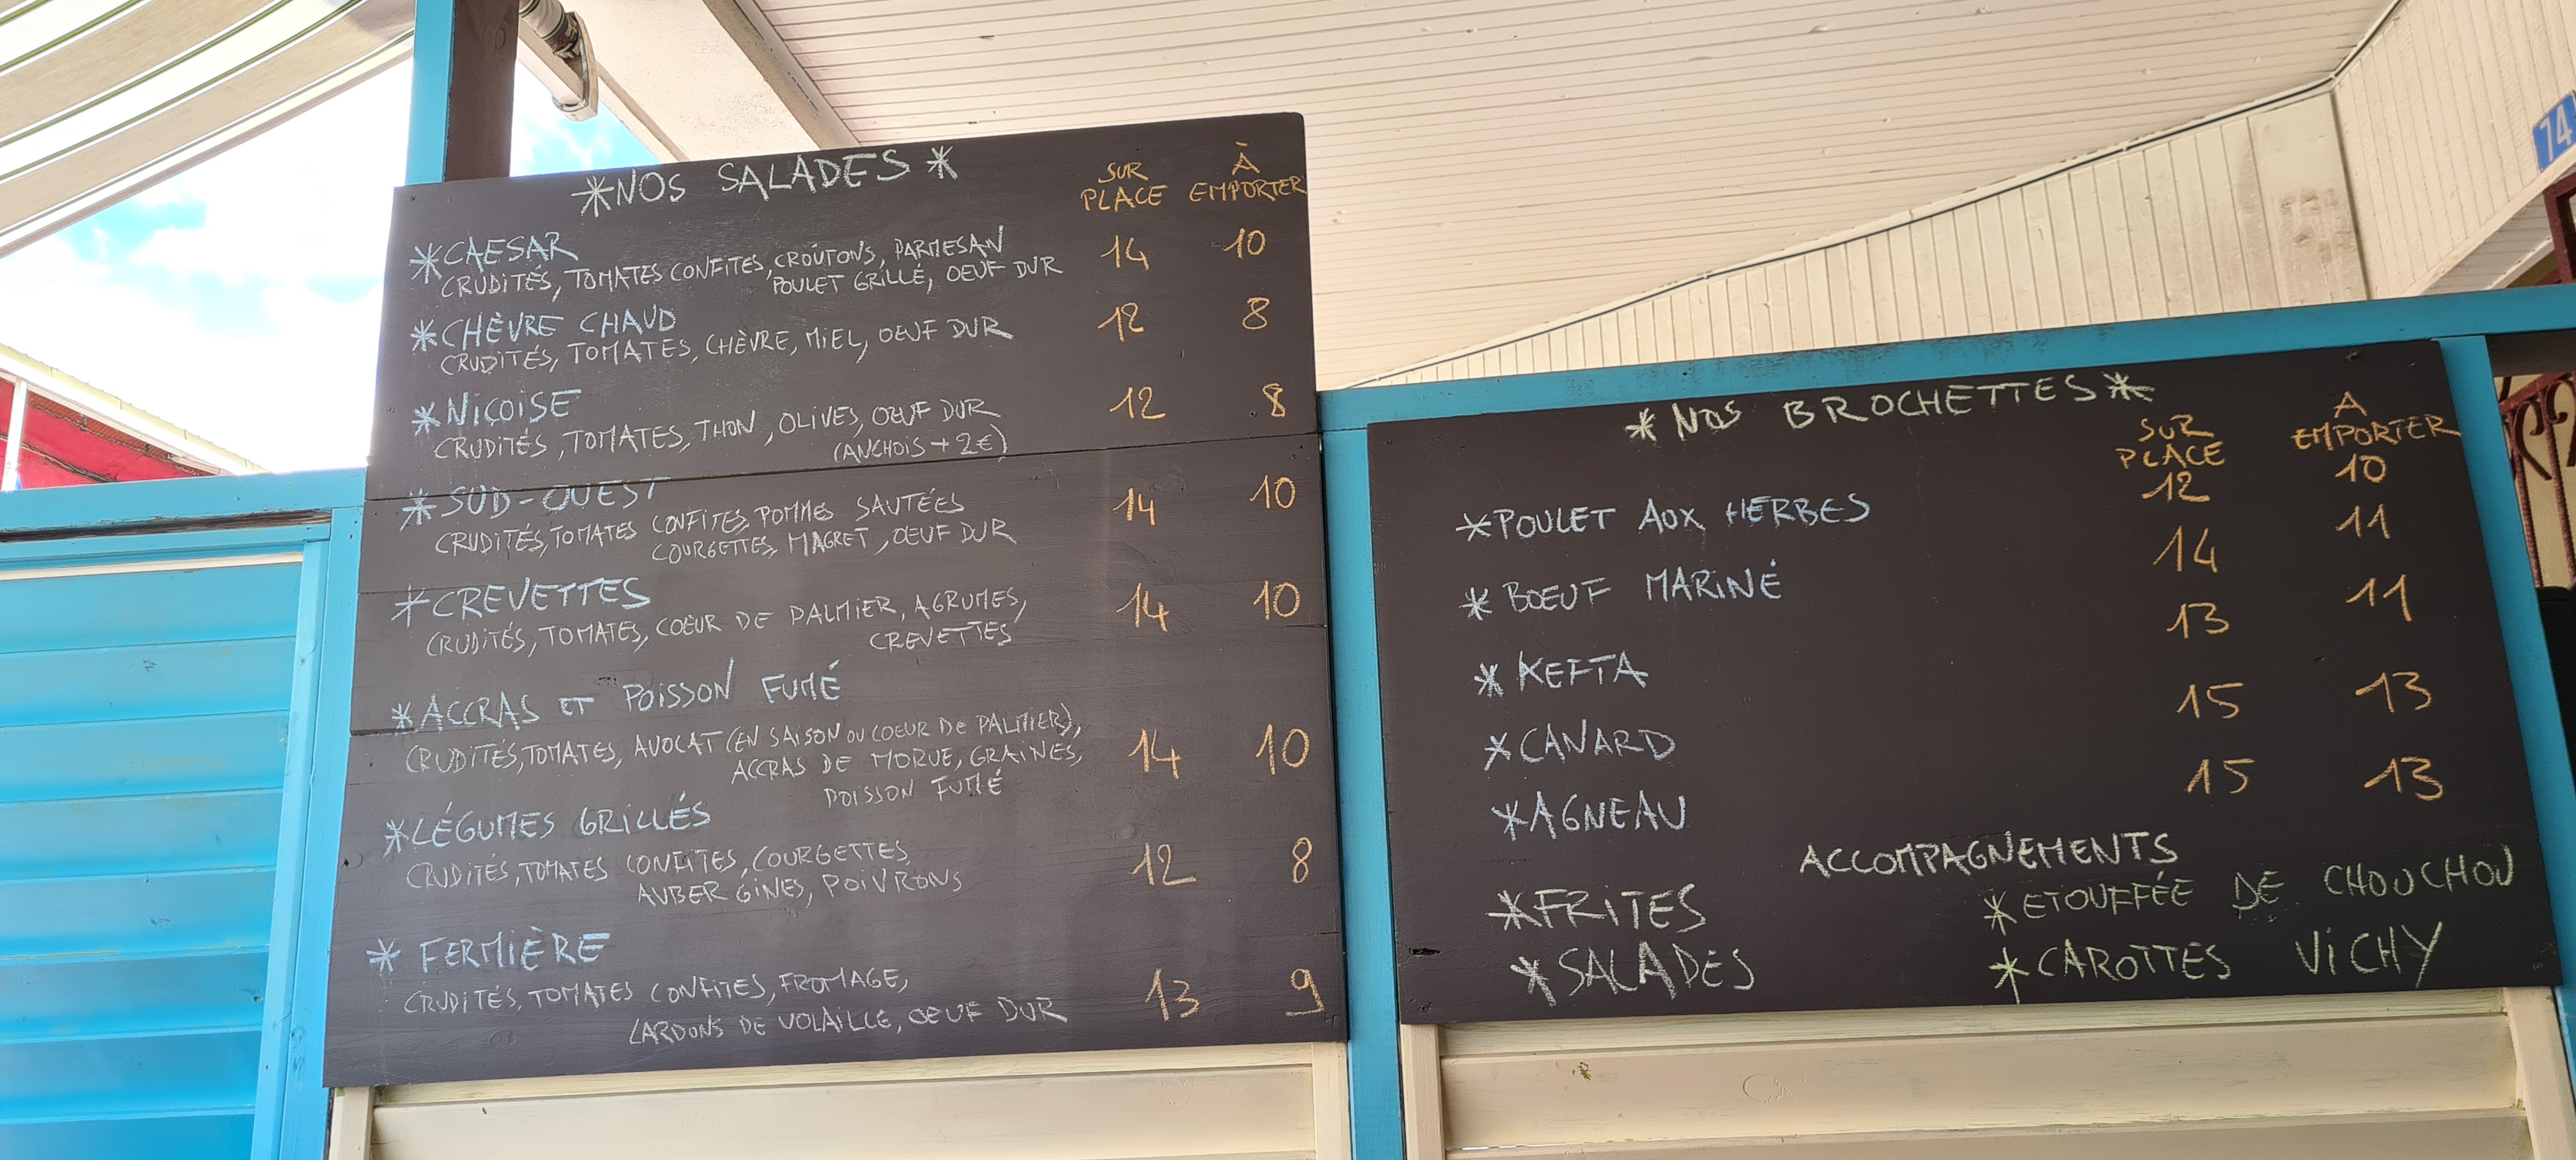 *NOS SALADES*
SUR PLACE
À EMPORTER
*CAESAR 14 10
CRUDITÉS, TOMATES CONFITES, CROÛTONS, PARMESAN
POULET GRILLÉ, OEUF DUR
*CHÈVRE CHAUD 12 8
CRUDITÉS, TOMATES, CHÈVRE, MIEL, OEUF DUR
*NIÇOISE 12 8
CRUDITÉS, TOMATES, THON, OLIVES, OEUF DUR
(ANCHOIS + 2€)
*SUD-OUEST 14 10
CRUDITÉS, TOMATES CONFITES, POMMES SAUTÉES
COURGETTES, MAGRET, OEUF DUR
*CREVETTES 14 10
CRUDITÉS, TOMATES, COEUR DE PALMIER, AGRUMES,
CREVETTES
*ACCRAS ET POISSON FUMÉ
CRUDITÉS, TOMATES, AVOCAT (EN SAISON OU COEUR DE PALMIER), 14 10
ACCRAS DE MORUE, GRAINES,
POISSON FUMÉ
*LÉGUMES GRILLÉS
CRUDITÉS, TOMATES CONFITES, COURGETTES, 12 8
AUBERGINES, POIVRONS
*FERMIÈRE
CRUDITÉS, TOMATES CONFITES, FROMAGE, 13 9
LARDONS DE VOLAILLE, OEUF DUR
*NOS BROCHETTES*
SUR PLACE
A EMPORTER
*POULET AUX HERBES 12 10
*BOEUF MARINÉ 14 11
*KEFTA 13 11
*CANARD 15 13
*AGNEAU 15 13
ACCOMPAGNEMENTS
*FRITES *ETOUFFÉE DE CHOUCHOU
*SALADES *CAROTTES VICHY
74